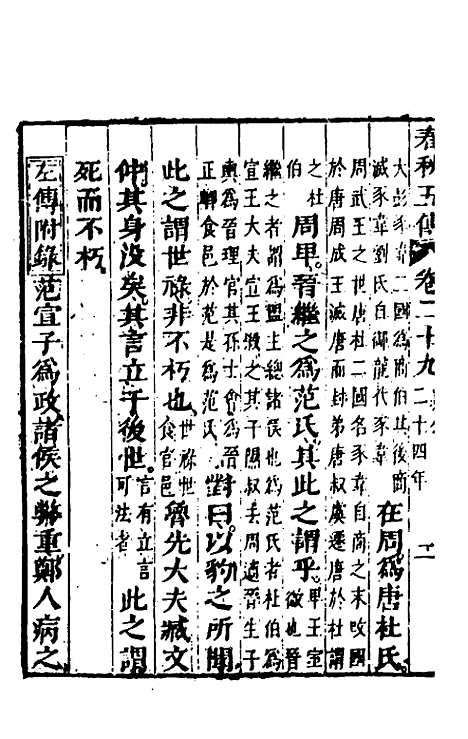 春秋五傳 卷二十九 二十四年 二
大彭豕韋二國為商伯其後商
滅豕韋劉氏自御龍代豕韋
在周為唐杜氏
周武王之世唐杜二國名豕韋自商之末改國
於唐周成王滅唐而封弟唐叔虞遷唐於杜謂
之杜
伯
周卑晉繼之為范氏其此之謂乎
卑王室
微也晉
繼之者謂為盟主總諸侯也為范氏者杜伯為
宣王大夫宣王殺之其子隰叔去周適晉生子
輿為晉理官其孫士會為晉
正卿食邑於范是為范氏
對曰以豹之所聞
此之謂世祿非不朽也
世祿世
食官邑
魯先大夫臧文
仲其身沒矣其言立于後世
言有立言
可法者
此之謂
死而不朽
左傳附錄 范宣子為政諸侯之幣重鄭人病之